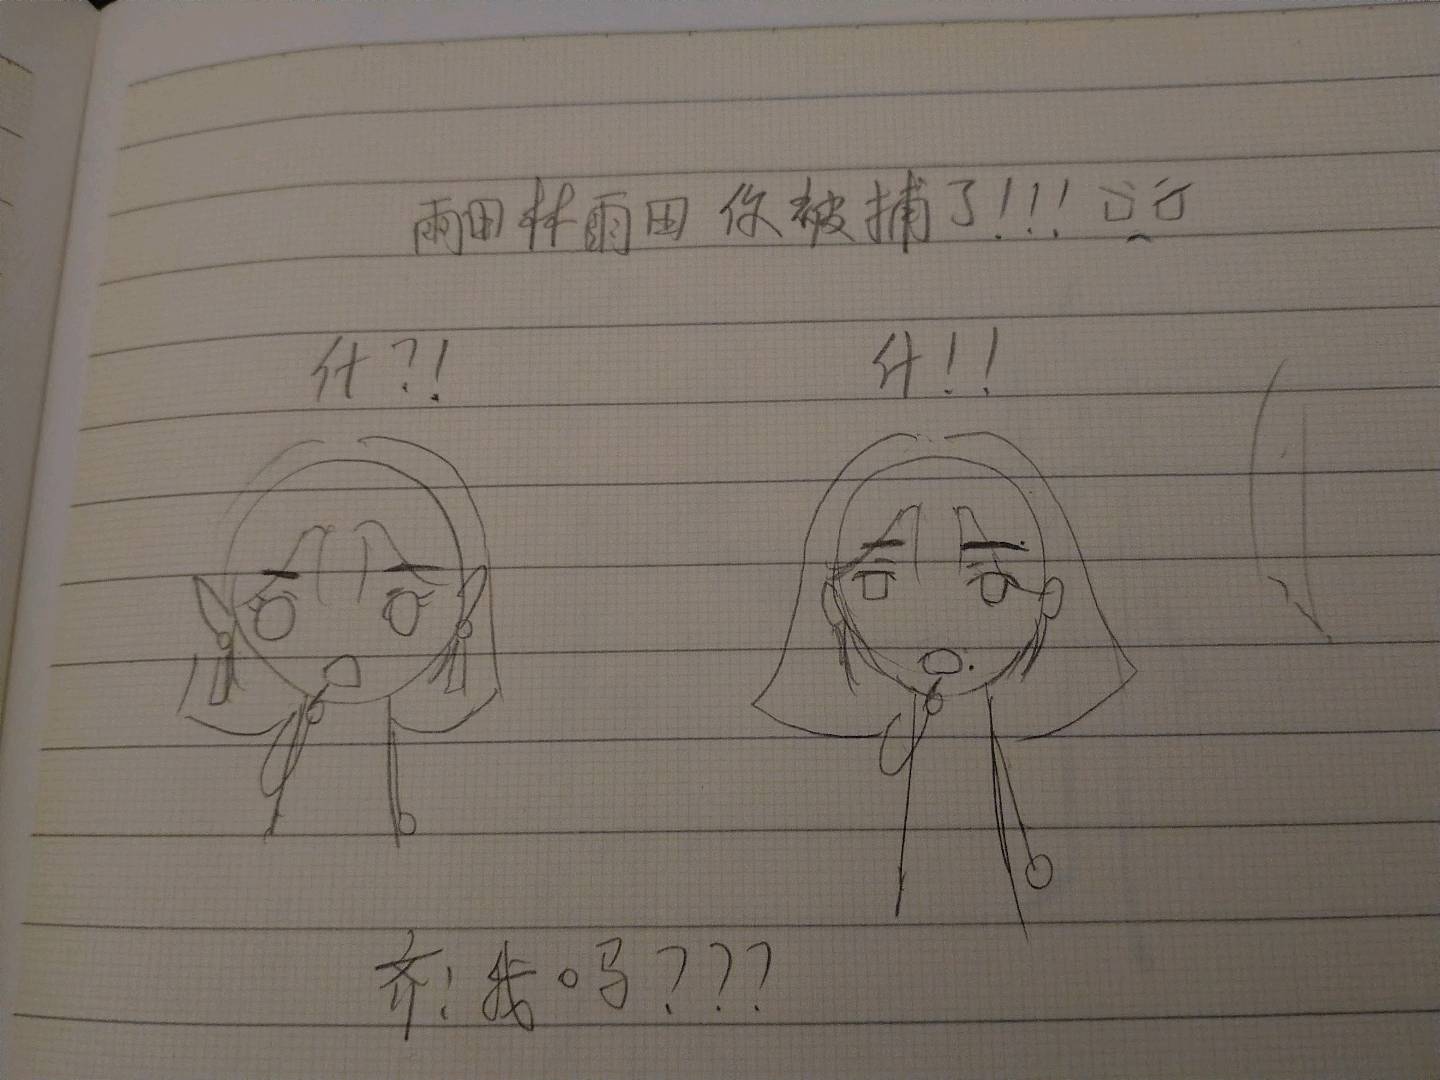 雨田林雨田你被捕了!!!
什?! 什!!
齐:我吗???